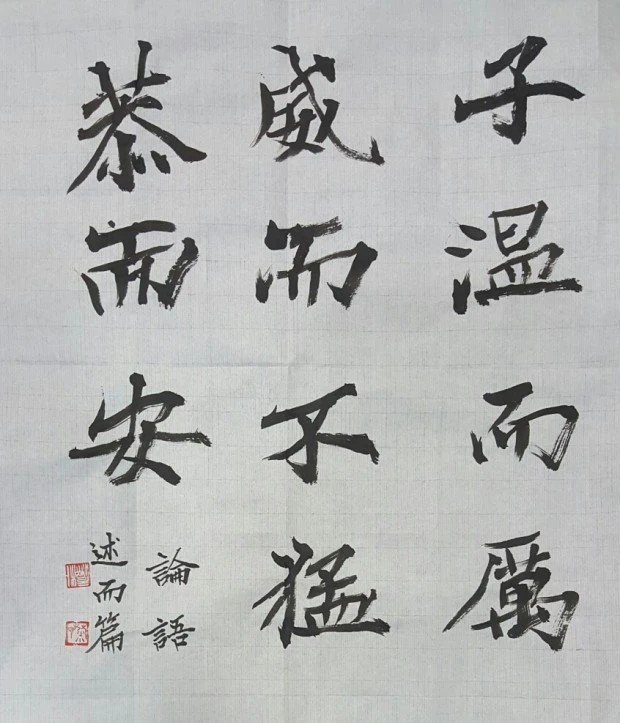 子溫而厲
威而不猛
恭而安
論語
述而篇